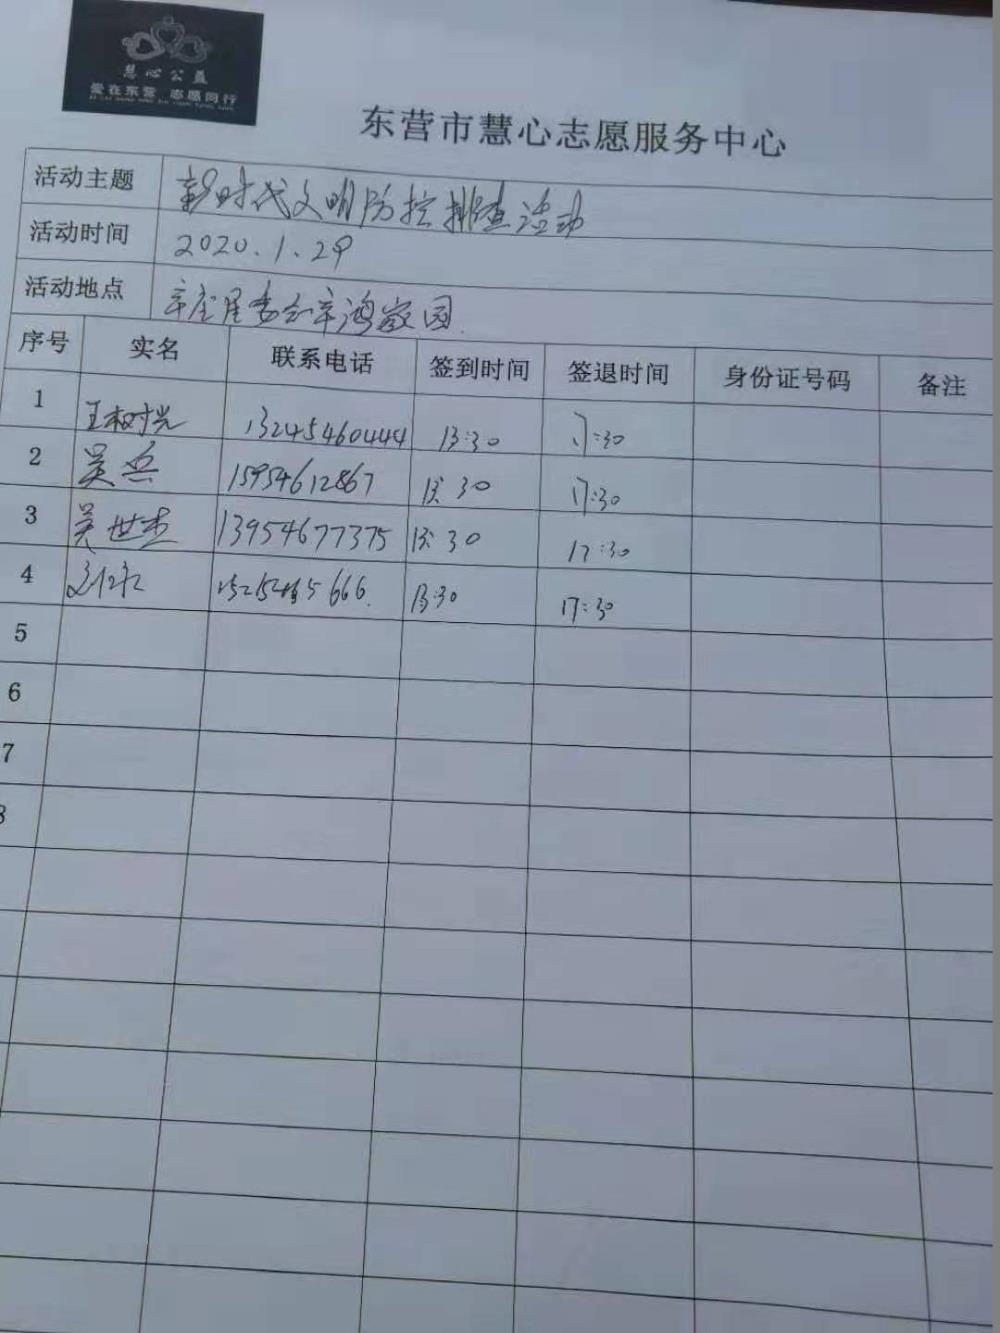 慧心公益
爱在东营 志愿同行
东营市慧心志愿服务中心
活动主题 新时代文明防控排查活动
活动时间 2020.1.29
活动地点 辛庄居委会辛鸿家园.
序号 实名 联系电话 签到时间 签退时间 身份证号码 备注
1 王树光 13245460444 13:30 17:30
2 吴兵 15954612867 13:30 17:30
3 吴世杰 13954677375 13:30 17:30
4 13:30 17:30
5
6
7
8